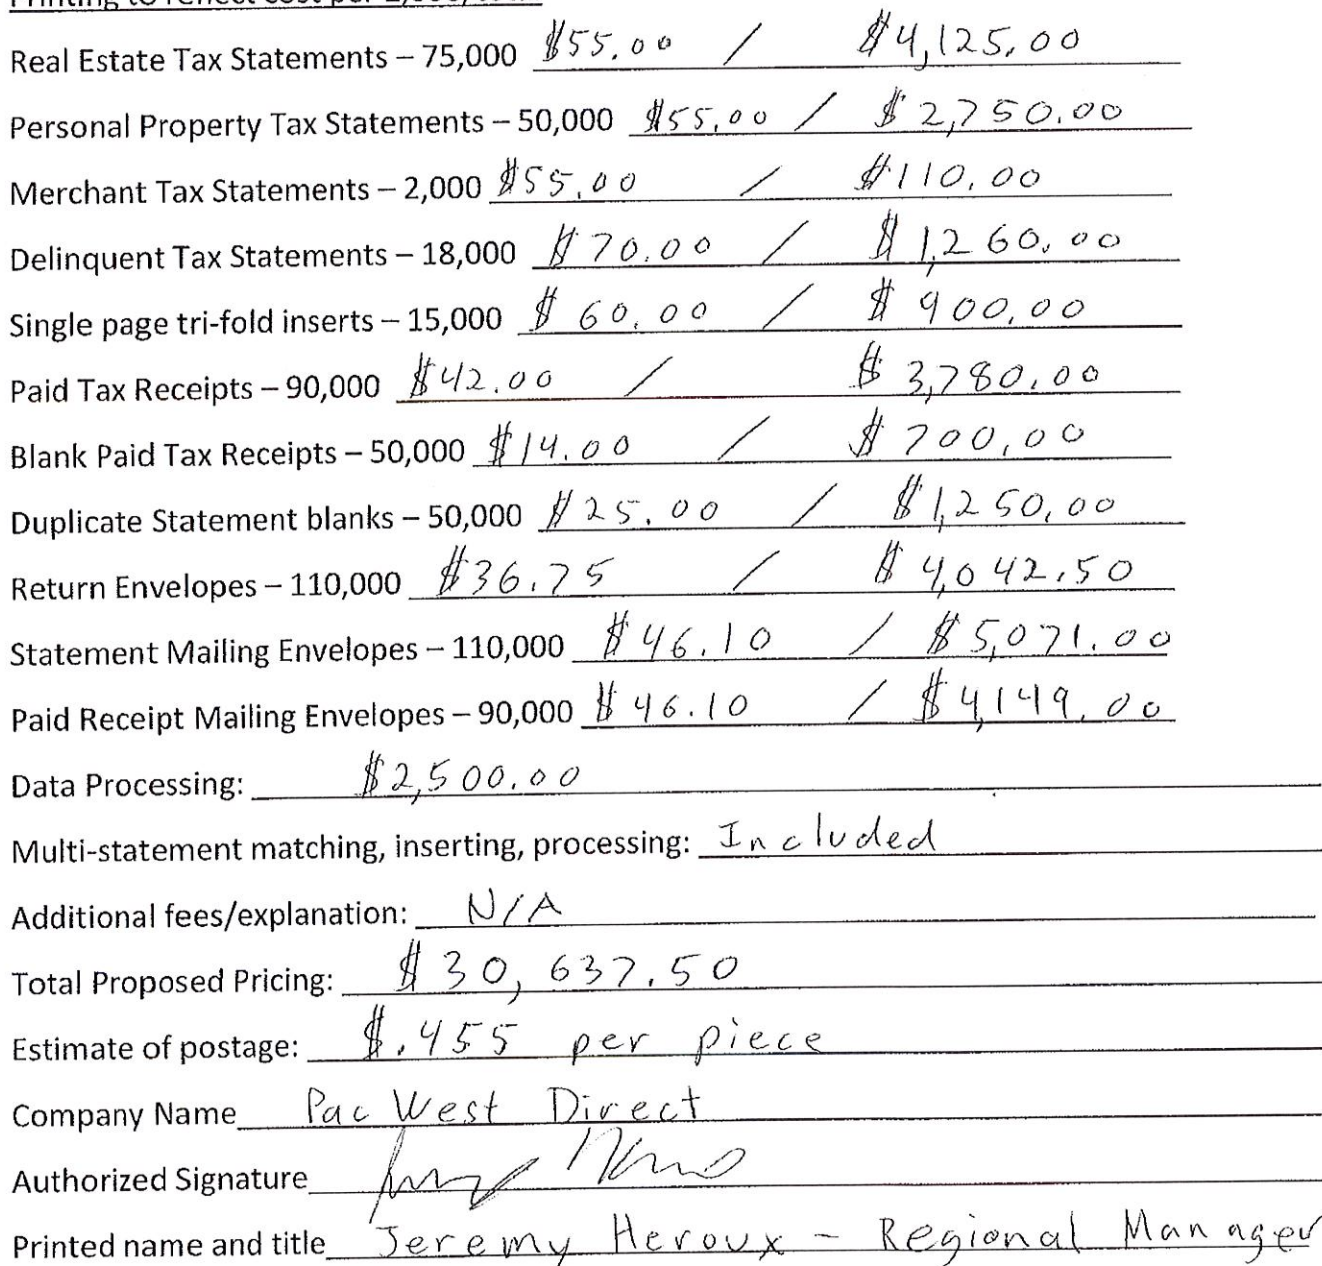 Real Estate Tax Statements – 75,000 $55.00 / $4,125.00
Personal Property Tax Statements – 50,000 $55.00 / $2,750.00
Merchant Tax Statements – 2,000 $55.00 / $110.00
Delinquent Tax Statements – 18,000 $70.00 / $1,260.00
Single page tri-fold inserts – 15,000 $60.00 / $900.00
Paid Tax Receipts – 90,000 $42.00 / $3,780.00
Blank Paid Tax Receipts – 50,000 $14.00 / $700.00
Duplicate Statement blanks – 50,000 $25.00 / $1,250.00
Return Envelopes – 110,000 $36.75 / $4,042.50
Statement Mailing Envelopes – 110,000 $46.10 / $5,071.00
Paid Receipt Mailing Envelopes – 90,000 $46.10 / $4,149.00
Data Processing: $2,500.00
Multi-statement matching, inserting, processing: Included
Additional fees/explanation: N/A
Total Proposed Pricing: $30,637.50
Estimate of postage: $.455 per piece
Company Name Pac West Direct
Authorized Signature
Printed name and title Jeremy Heroux - Regional Manager